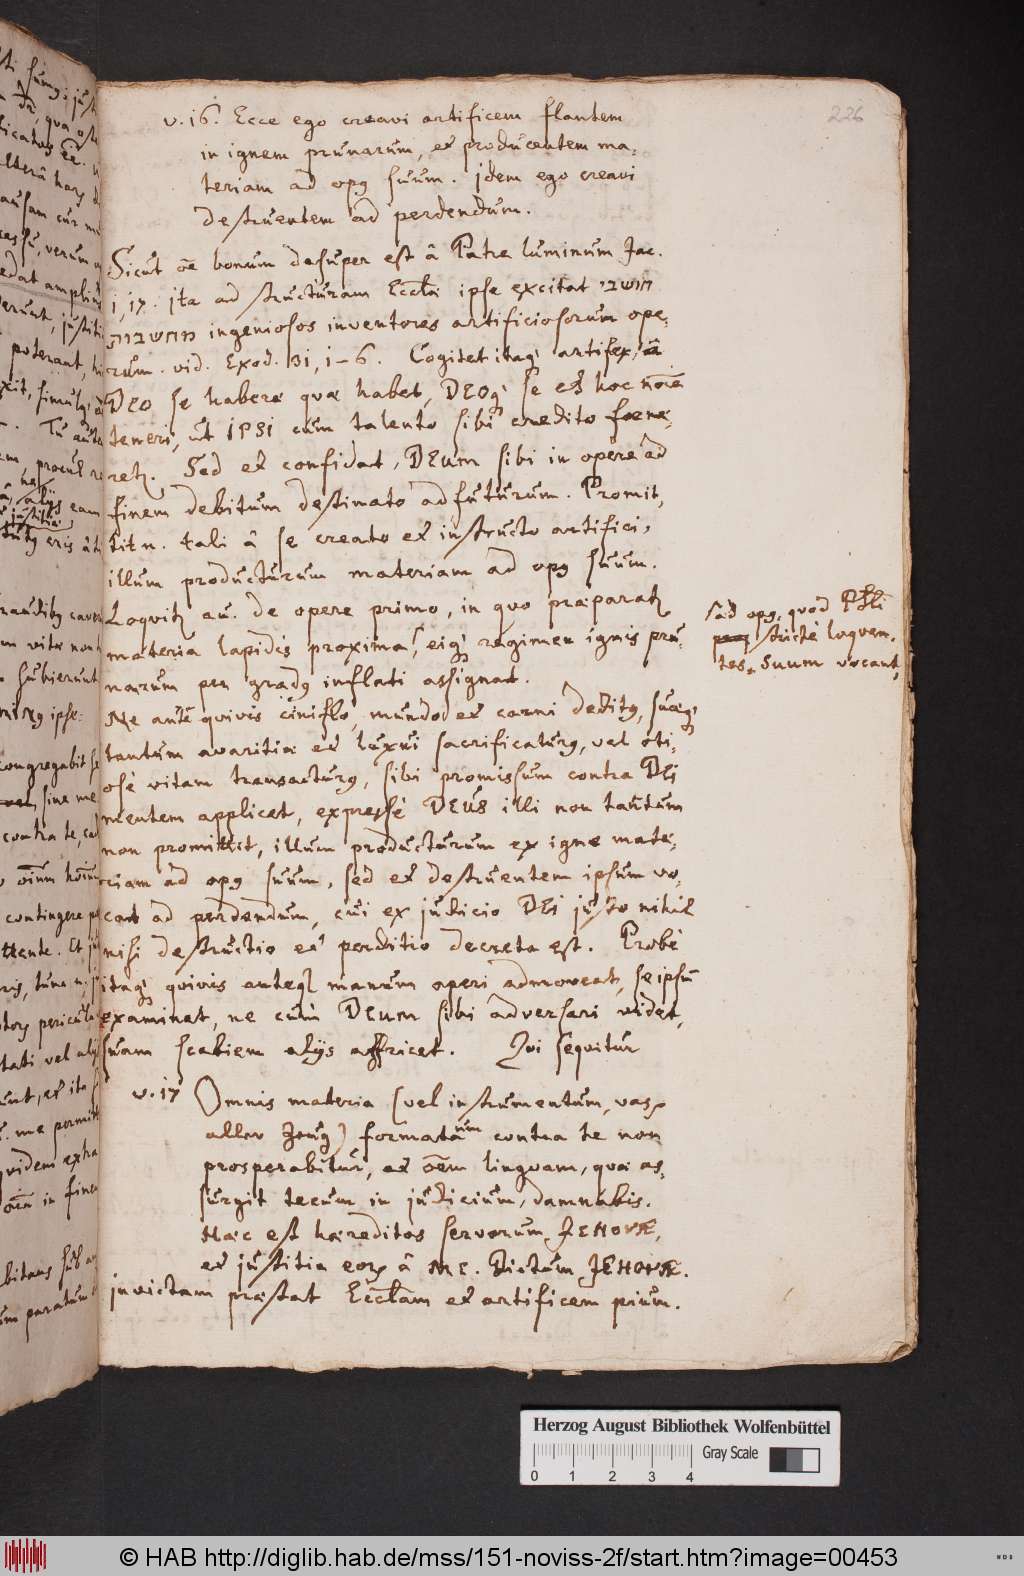 226
v. 16. Ecce ego creavi artificem flantem
in ignem prunarum, et producentem ma-
teriam ad opg suum. Idem ego creavi
destruentem ad perdendum.
Sicut oe bonum desuper est â Patre luminum Jac.
1, 17. ita ad structuram Eccl̄æ ipse excitat חושבי
מחשבות ingeniosos inventores artificiosorum ope-
rum. vid. Exod. 31, 1-6. Cogitet itaq artifex, â
DEO se habere quæ habet, DEOq se et hoc
temeri, ut IPSI cum talento sibi credito foene-
ret. Sed et confidat, DEUM sibi in opere ad
finem debitum destinato adfuturum. Promit-
tit n. tali â se creato et instructo artifici,
illum producturum materiam ad opg suum.
Loquit au. de opere primo, in quo præparat
materia lapidis proxima, eiq regimen ignis pru-
narum per gradg inflati assignat.
Sed opg, quod
strictè loquen-
tes, Suum vocant,
Ne autē quivis ciniflo, mundo et carni deditg, suæq
tantum avaritiæ et luxui sacrificaturg, vel oti-
osè vitam transacturg, sibi promissum contra DEI
mentem applicet, expressè DEUS illi non tantum
non promittit, illum producturum ex igne mate-
riam ad opg suum, sed et destruentem ipsum vo-
cat ad perdendum, cui ex judicio DEI justo nihil
nisi destructio et perditio decreta est. Probè
itaq quivis anteq manum operi admoveat, seipsū
examinet, ne cum DEum sibi adversari videt,
suam scabiem alijs affricet. Qui sequitur
v. 17 Omnis materia (vel instrumentum, vas,
aller Zeug) formatanum contra te non
prosperabitur, et oēm linguam, quæ as-
surgit tecum in judicium, damnabis.
Hæc est hæreditas servorum JEHOVÆ,
et justitia eor â ME. Dictum JEHOVÆ.
invictam præstat Eccl̄am et artificem pium.
Herzog August Bibliothek Wolfenbüttel
0 1 2 3 4 Gray Scale
© HAB http://diglib.hab.de/mss/151-noviss-2f/start.htm?image=00453